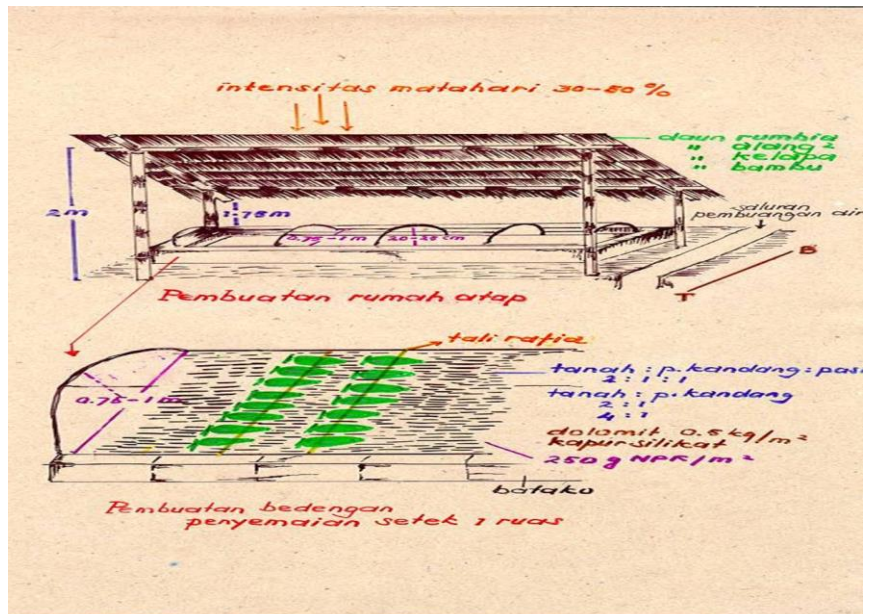 intensitas matahari 30-50 %
daun rumbia
" alang²
" kelapa
" bambu
2 m
1.75 m
saluran
pembuangan air
0.75-1 m
20-25 cm
B
T
Pembuatan rumah atap
tali rafia
0.75-1 m
tanah : p. kandang : pasi
2 : 1 : 1
tanah : p. kandang
2 : 1
4 : 1
dolomit 0.5 kg/m²
kapur silikat
250 g NPK/m²
batako
Pembuatan bedengan
penyemaian setek 1 ruas